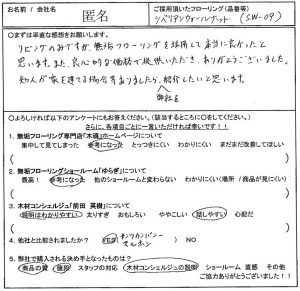 お名前 / 会社名 匿名 ご採用頂いたフローリング(品番等) シベリアンウォールナット (SW-09)
○まずは率直な感想をお願いします。
リビングのみですが、無垢フローリングを採用して本当に良かったと
思います。また、良心的な価格で提供いただき、ありがとうございました。
知人が家を建てる場合等ありましたら、紹介したいと思います。
御社を
○よろしければ以下のアンケートにもお答えください。(該当するところに○をしてください。)
さらに、各項目ごとに一言いただければ幸いです！！
1. 無垢フローリング専門店『木魂』ホームページについて
集中して見てしまった 参考になった とっつきにくい わかりにくい まだまだ改善してほしい
2. 無垢フローリングショールーム『ゆらぎ』について
最高！ 参考になった 他のショールームと変わらない わかりにくい(場所 / 商品が見にくい)
3. 木材コンシェルジュ『前田 英樹』について
説明はわかりやすい 太りすぎ おもしろい ややこしい 話しやすい 心配だ
4. 他社と比較されましたか？ YES( マルホン ) NO
5. 弊社で購入される決め手となったものは？
商品の質 値段 スタッフの対応 木材コンシェルジュの説明 ショールーム 直感 その他
ご協力ありがとうございました！！